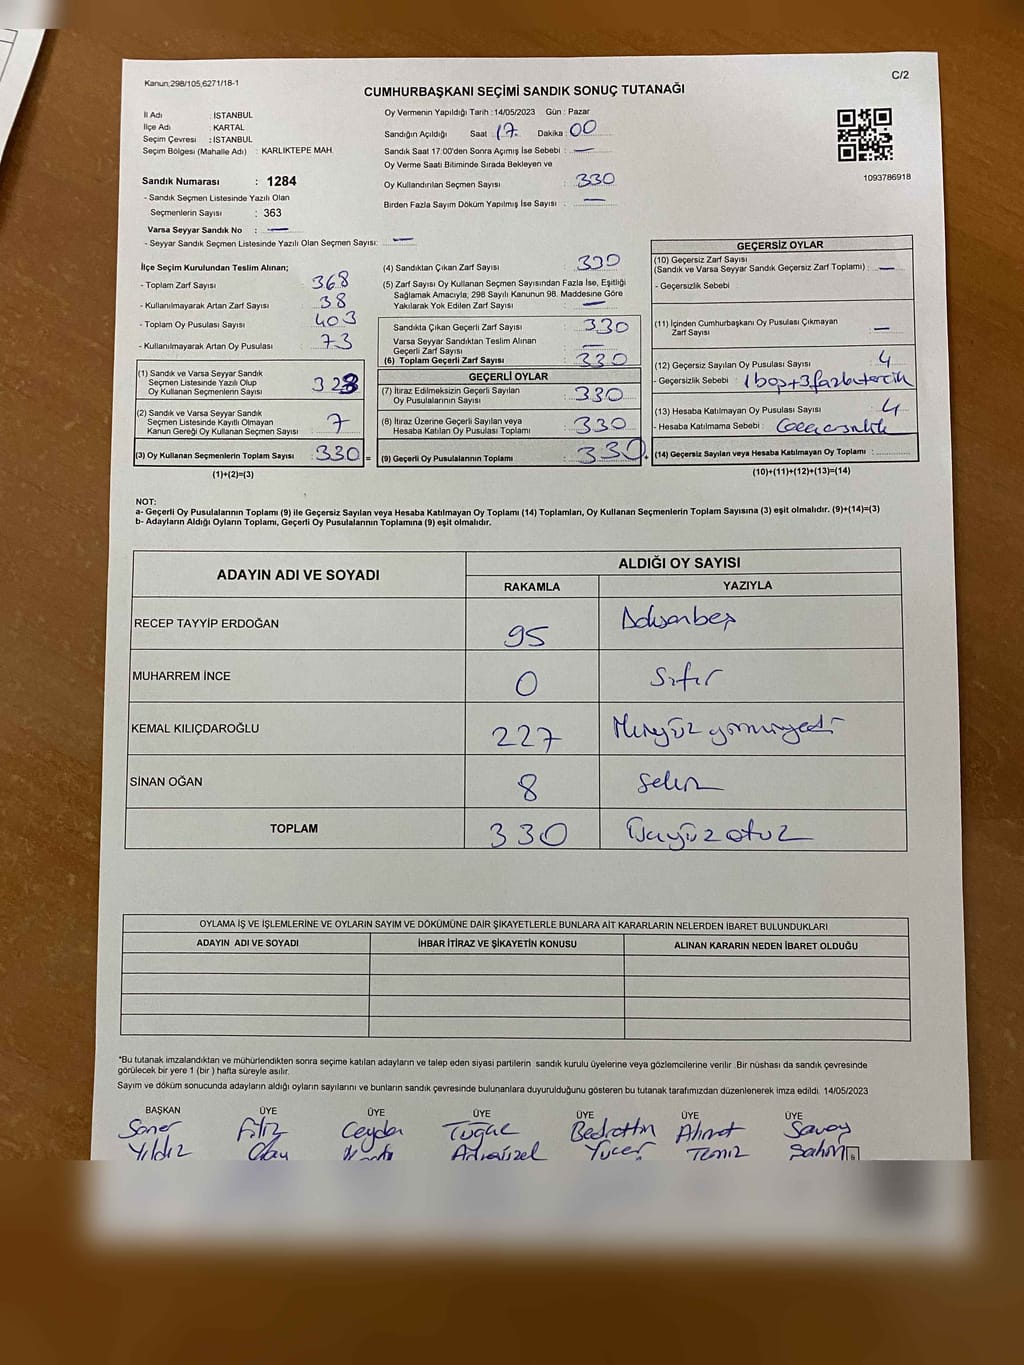 Kanun;298/105,6271/18-1
C/2
CUMHURBAŞKANI SEÇİMİ SANDIK SONUÇ TUTANAĞI
İl Adı : İSTANBUL
İlçe Adı : KARTAL
Seçim Çevresi : İSTANBUL
Seçim Bölgesi (Mahalle Adı) : KARLIKTEPE MAH.
Oy Vermenin Yapıldığı Tarih :14/05/2023 Gün : Pazar
Sandığın Açıldığı Saat 17 Dakika : 00
Sandık Saat 17:00'den Sonra Açımış İse Sebebi : —
Oy Verme Saati Bitiminde Sırada Bekleyen ve
Oy Kullandırılan Seçmen Sayısı : 330
Birden Fazla Sayım Döküm Yapılmış İse Sayısı : —
1093786918
Sandık Numarası : 1284
- Sandık Seçmen Listesinde Yazılı Olan
Seçmenlerin Sayısı : 363
Varsa Seyyar Sandık No : —
- Seyyar Sandık Seçmen Listesinde Yazılı Olan Seçmen Sayısı: —
İlçe Seçim Kurulundan Teslim Alınan;
- Toplam Zarf Sayısı : 368
- Kullanılmayarak Artan Zarf Sayısı : 38
- Toplam Oy Pusulası Sayısı : 403
- Kullanılmayarak Artan Oy Pusulası : 73
(1) Sandık ve Varsa Seyyar Sandık
Seçmen Listesinde Yazılı Olup
Oy Kullanan Seçmenlerin Sayısı : 323
(2) Sandık ve Varsa Seyyar Sandık
Seçmen Listesinde Kayıtlı Olmayan
Kanun Gereği Oy Kullanan Seçmen Sayısı : 7
(3) Oy Kullanan Seçmenlerin Toplam Sayısı : 330 =
(1)+(2)=(3)
(4) Sandıktan Çıkan Zarf Sayısı : 330
(5) Zarf Sayısı Oy Kullanan Seçmen Sayısından Fazla İse, Eşitliği
Sağlamak Amacıyla; 298 Sayılı Kanunun 98. Maddesine Göre
Yakılarak Yok Edilen Zarf Sayısı : —
Sandıkta Çıkan Geçerli Zarf Sayısı : 330
Varsa Seyyar Sandıktan Teslim Alınan
Geçerli Zarf Sayısı : —
(6) Toplam Geçerli Zarf Sayısı : 330
GEÇERLİ OYLAR
(7) İtiraz Edilmeksizin Geçerli Sayılan
Oy Pusulalarının Sayısı : 330
(8) İtiraz Üzerine Geçerli Sayılan veya
Hesaba Katılan Oy Pusulası Toplamı : 330
(9) Geçerli Oy Pusulalarının Toplamı : 330
GEÇERSİZ OYLAR
(10) Geçersiz Zarf Sayısı
(Sandık ve Varsa Seyyar Sandık Geçersiz Zarf Toplamı) : —
- Geçersizlik Sebebi
(11) İçinden Cumhurbaşkanı Oy Pusulası Çıkmayan
Zarf Sayısı : —
(12) Geçersiz Sayılan Oy Pusulası Sayısı : 4
- Geçersizlik Sebebi : 1 boş+3 fazla tercih
(13) Hesaba Katılmayan Oy Pusulası Sayısı : 4
- Hesaba Katılmama Sebebi :
(14) Geçersiz Sayılan veya Hesaba Katılmayan Oy Toplamı :
(10)+(11)+(12)+(13)=(14)
NOT:
a- Geçerli Oy Pusulalarının Toplamı (9) ile Geçersiz Sayılan veya Hesaba Katılmayan Oy Toplamı (14) Toplamları, Oy Kullanan Seçmenlerin Toplam Sayısına (3) eşit olmalıdır. (9)+(14)=(3)
b- Adayların Aldığı Oyların Toplamı, Geçerli Oy Pusulalarının Toplamına (9) eşit olmalıdır.
ADAYIN ADI VE SOYADI
ALDIĞI OY SAYISI
RAKAMLA YAZIYLA
RECEP TAYYİP ERDOĞAN 95 Doksanbeş
MUHARREM İNCE 0 Sıfır
KEMAL KILIÇDAROĞLU 227 İkiyüz yirmiyedi
SİNAN OĞAN 8 Sekiz
TOPLAM 330 Üçyüz otuz
OYLAMA İŞ VE İŞLEMLERİNE VE OYLARIN SAYIM VE DÖKÜMÜNE DAİR ŞİKAYETLERLE BUNLARA AİT KARARLARIN NELERDEN İBARET BULUNDUKLARI
ADAYIN ADI VE SOYADI İHBAR İTİRAZ VE ŞİKAYETİN KONUSU ALINAN KARARIN NEDEN İBARET OLDUĞU
*Bu tutanak imzalandıktan ve mühürlendikten sonra seçime katılan adayların ve talep eden siyasi partilerin sandık kurulu üyelerine veya gözlemcilerine verilir .Bir nüshası da sandık çevresinde
görülecek bir yere 1 (bir ) hafta süreyle asılır.
Sayım ve döküm sonucunda adayların aldığı oyların sayılarını ve bunların sandık çevresinde bulunanlara duyurulduğunu gösteren bu tutanak tarafımızdan düzenlenerek imza edildi. 14/05/2023
BAŞKAN ÜYE ÜYE ÜYE ÜYE ÜYE ÜYE
Soner Filiz Ceyda Tuğçe Bedrettin Ahmet Savaş
Yıldız Adıgüzel Yücer Temiz Şahin